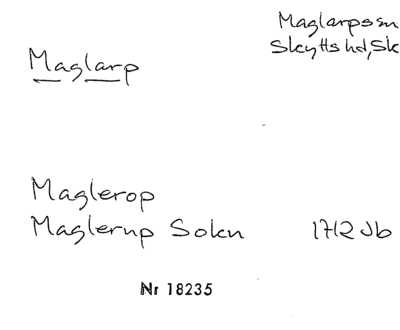 Maglarpssn
Skytts hd, Sk
Maglarp
Maglerop
Maglerup Sokn 1712 Jb
Nr 18235